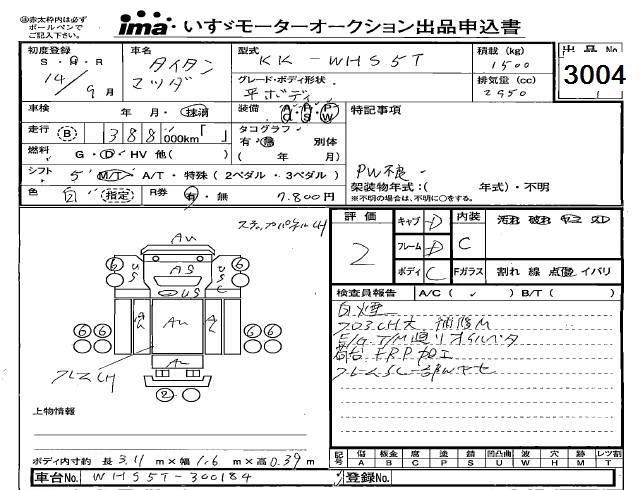 ㊟赤太枠内は必ず
ボールペンで
ご記入下さい。
ima いすゞモーターオークション出品申込書
初度登録
S・H・R
14/9月
車名
タイタン
マツダ
型式
KK-WHS5T
積載(kg)
1500
出品No
3004
グレード・ボディ形状
平ボディ
排気量(cc)
2950
車検 年・月・抹消
装備 A/C P/S P/W
特記事項
走行 B 388,000km「 」
タコグラフ
有・無 別体
( 年 月)
燃料 G・D・HV 他( )
PW不良
シフト 5 M/T・A/T・特殊(2ペダル・3ペダル)
架装物年式:( 年式)・不明
※不明の場合は、不明に○をする。
色 白 (指定) R券 有・無 7,800円
ステップパネルCH
評価 2
キャブ D
フレーム D
ボディ C
内装 C
汚れ 破れ
Fガラス 割れ 線 点傷 イバリ
検査員報告 A/C( ✓ ) B/T( )
白煙
フロコCH大 補修M
E/G,T/M廻リオイルベタ
荷台FRP加工
フレームSC一部Wサビ
AU
6 6
US AS US
US C
AL AU AL
6 6 6 6
AL
フレスCH
2
上物情報
ボディ内寸約 長 3.11 m×幅 1.6 m×高 0.39 m
記号 傷A 板金B 腐C 塗P 錆S 凹凸曲U 波W 穴H 跡M レツ割T
車台No. WHS5T-300184
登録No.